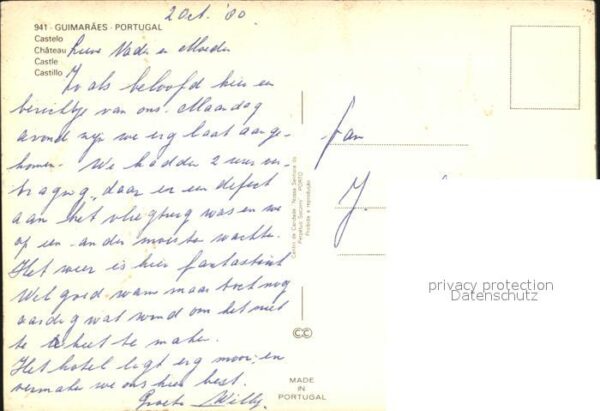 2 Oct. '80
941 - GUIMARÃES - PORTUGAL
Castelo
Château
Castle
Castillo
Lieve Vader en Moeder
Zo als beloofd hier een
berichtje van ons. Maandag
avond zijn we erg laat aange-
komen. We hadden 2 uur ver-
traging, daar er een defect
aan het vliegtuig was en we
op een ander moesten wachten.
Het weer is hier fantastisch
Wel goed warm maar toch nog
aardig wat wind om het niet
te heet te maken.
Het hotel ligt erg mooi en
vermaken we ons hier best.
Groeten Willy
Fam
J.
Centro de Caridade "Nossa Senhora do
Perpétuo Socorro" - PORTO
Proibida a reprodução
MADE
IN
PORTUGAL
privacy protection
Datenschutz